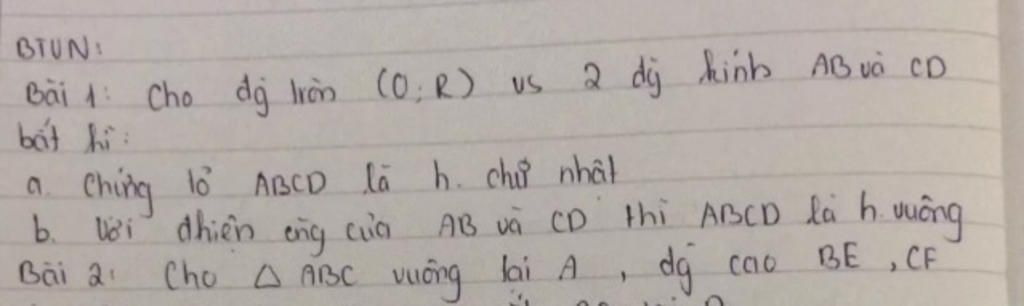 BTVN:
Bài 1: Cho đg tròn (O; R) vs 2 đg kính AB và CD
bất kì:
a. Chứng tỏ ABCD là h. chữ nhật
b. Với đkiện của AB và CD thì ABCD là h. vuông
Bài 2: Cho △ ABC vuông tại A, đg cao BE, CF